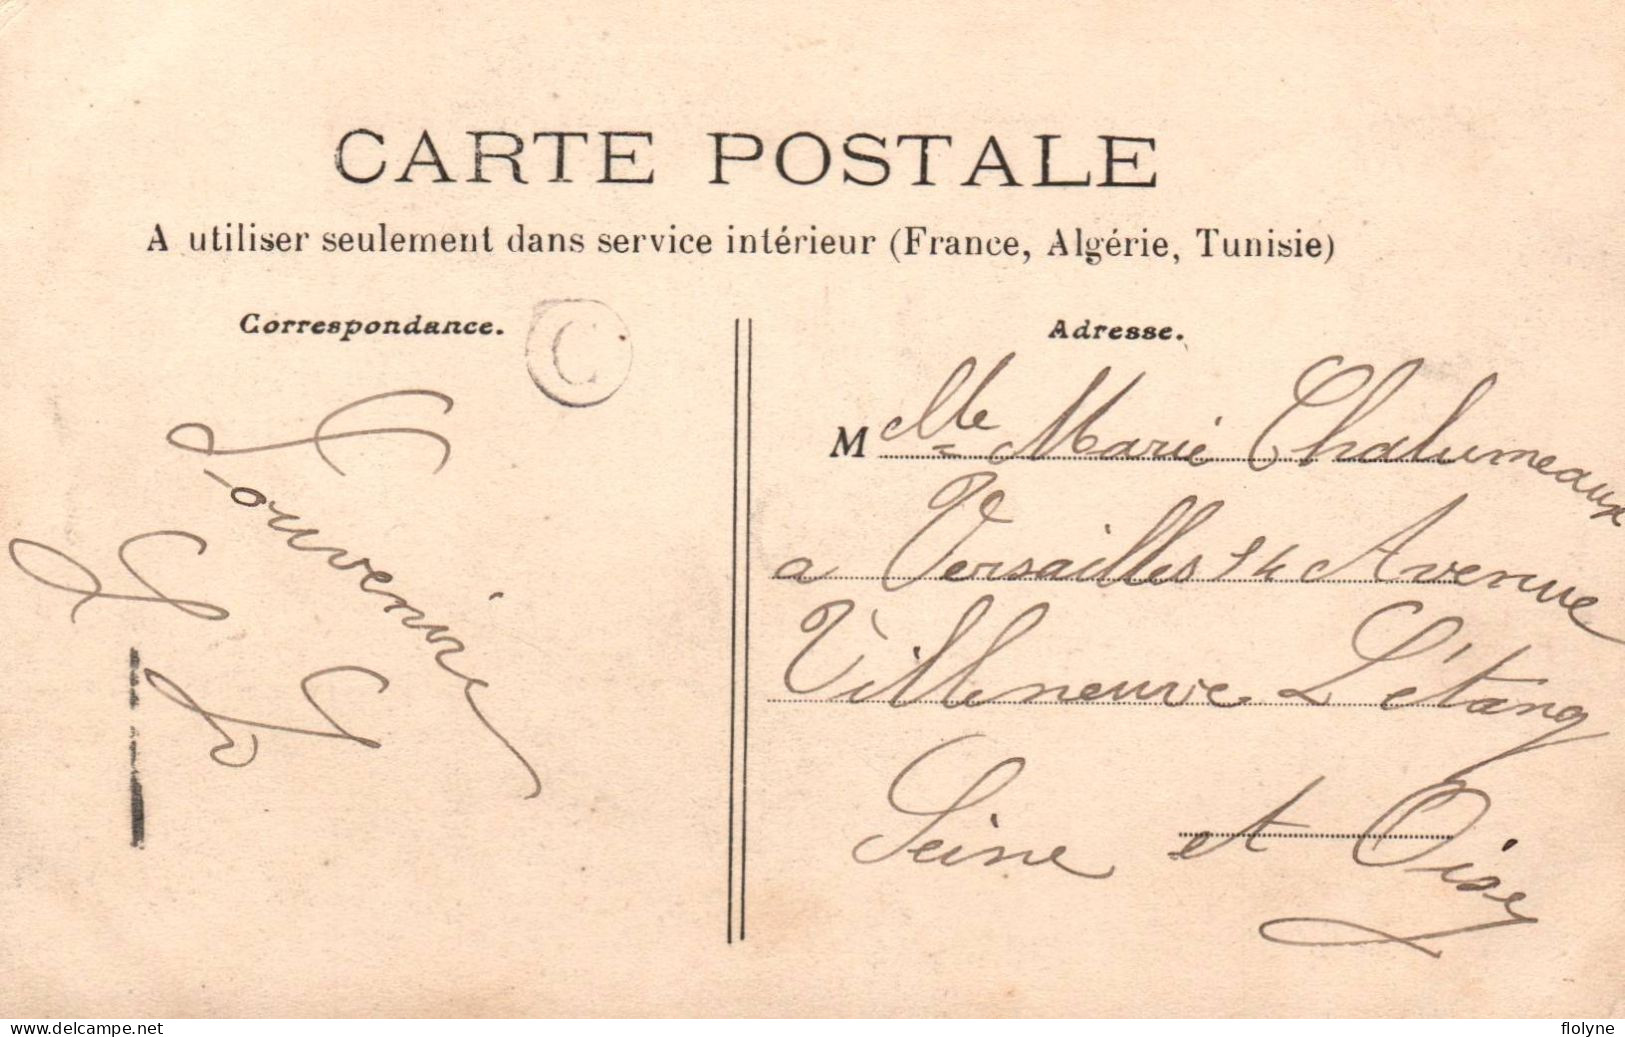 CARTE POSTALE
A utiliser seulement dans service intérieur (France, Algérie, Tunisie)
Correspondance.
C
Souvenir
Adresse.
Melle Marie Chalumeaux
a Versailles 14 Avenue
Villeneuve L'étang
Seine et Oise
www.delcampe.net
flolyne